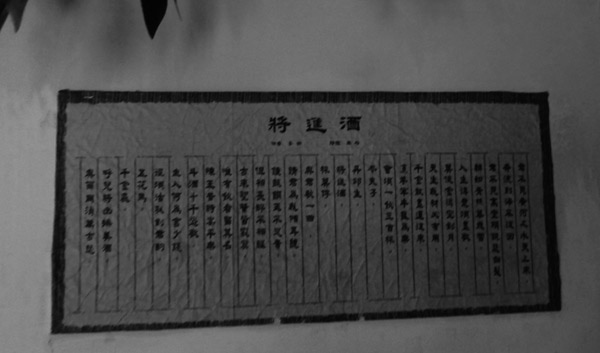 將進酒
君不見黃河之水天上來，
奔流到海不復回。
君不見高堂明鏡悲白髮，
朝如青絲暮成雪。
人生得意須盡歡，
莫使金樽空對月。
天生我材必有用，
千金散盡還復來。
烹羊宰牛且為樂，
會須一飲三百杯。
岑夫子，
丹邱生，
將進酒，
杯莫停。
與君歌一曲，
請君為我傾耳聽。
鐘鼓饌玉不足貴，
但願長醉不願醒。
古來聖賢皆寂寞，
唯有飲者留其名。
陳王昔時宴平樂，
斗酒十千恣歡謔。
主人何為言少錢，
徑須沽取對君酌。
五花馬，
千金裘，
呼兒將出換美酒，
與爾同銷萬古愁。